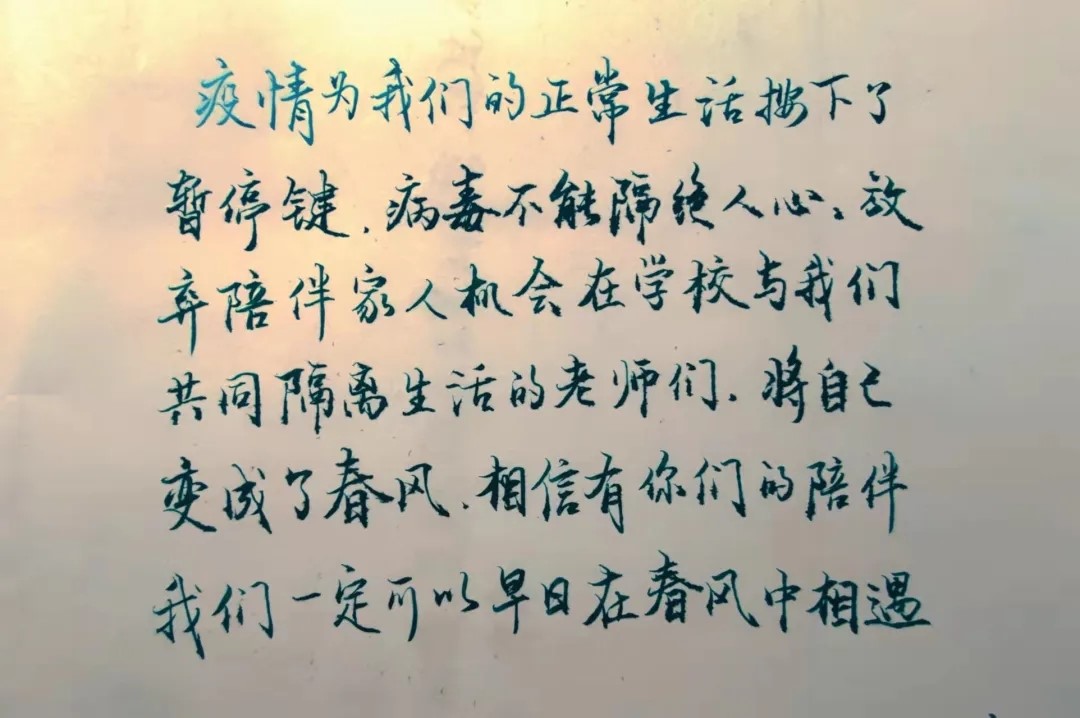 疫情为我们的正常生活按下了
暂停键，病毒不能隔绝人心。放
弃陪伴家人机会在学校与我们
共同隔离生活的老师们，将自己
变成了春风，相信有你们的陪伴
我们一定可以早日在春风中相遇